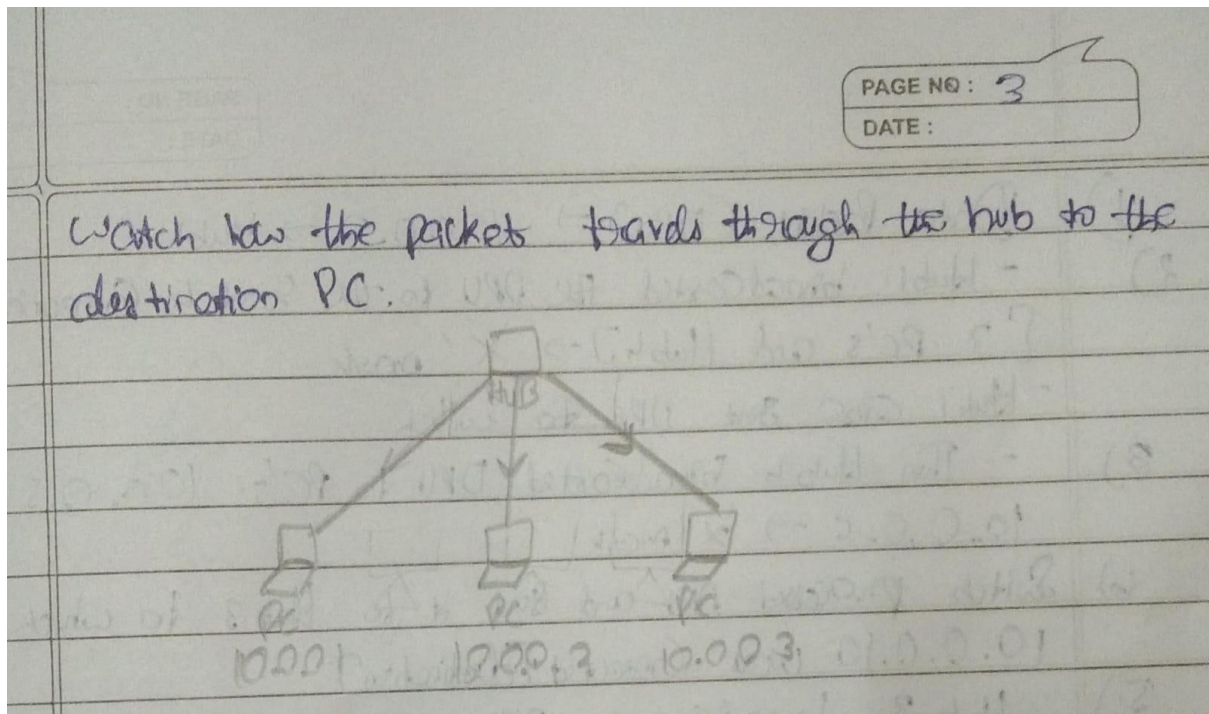 PAGE NO: 3
DATE:
Watch how the packets travels through the hub to the
destination PC.
HUB
PC PC PC
10.0.0.1 10.0.0.2 10.0.0.3